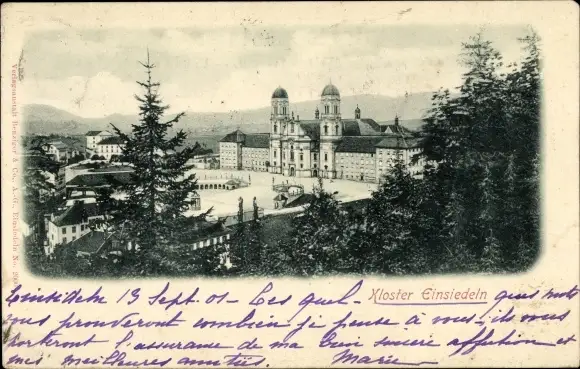 Verlagsanstalt Benziger & Co. A.-G., Einsiedeln No.
Kloster Einsiedeln
Einsidelen 13 Sept. 01 - Ces quelques mots
vous prouveront combien je pense à vous - ils vous
porteront l'assurance de ma bien sincère affection et
mes meilleures amitiés. Marie